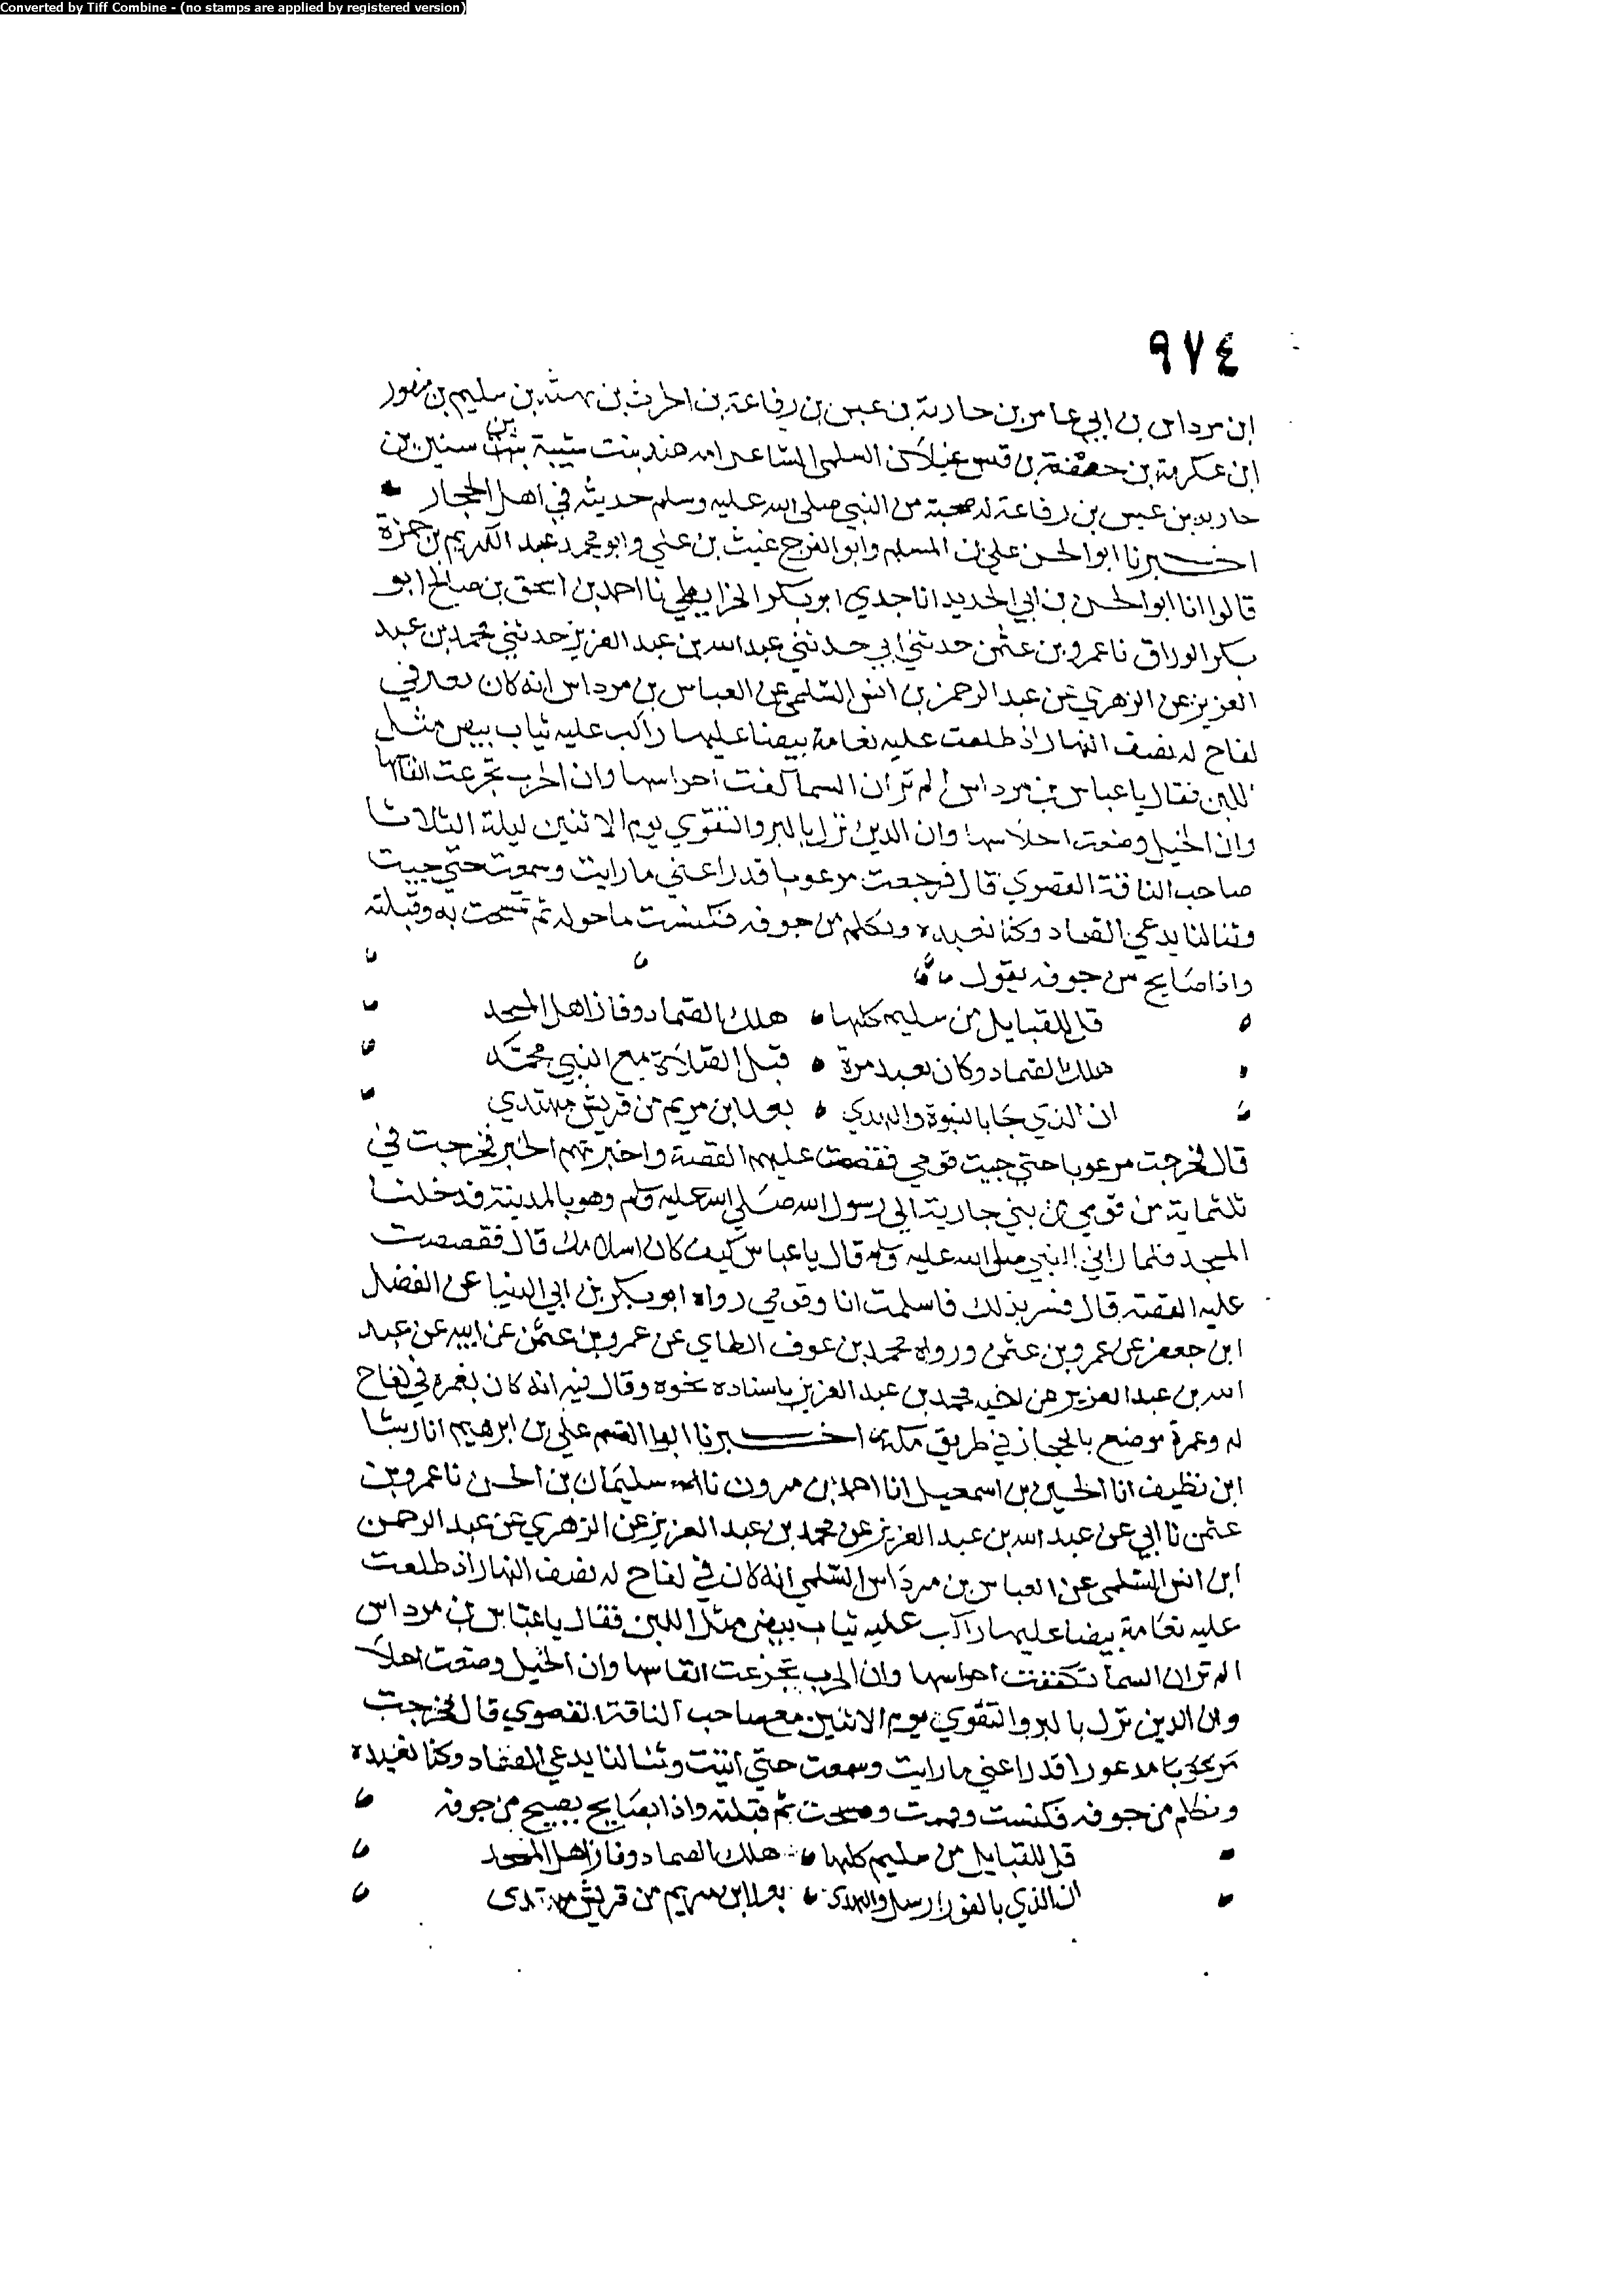 Converted by Tiff Combine - (no stamps are applied by registered version)
٩٧٤
ابن مرداس بن ابي عامر بن حارثة بن عبس بن رفاعة بن الحرث بن بهثة بن سليم بن منصور
ابن عكرمة بن حصفة بن قيس عيلان السلمي الشاعر امه هند بنت شيبة بن سنين بن
حاربه بن عبس بن رفاعة له صحبة من النبي صلى الله عليه وسلم حديثه في اهل الحجاز
اخبرنا ابو الحسن علي بن المسلم وابو الفرج غيث بن علي وابو محمد عبد الكريم بن حمزة
قالوا انا ابو الحسن بن ابي الحديد انا جدي ابو بكر الخرايطي نا احمد بن اسحق بن صالح ابو
بكر الوراق نا عمرو بن عثمن حدثني ابي حدثني عبد الله بن عبد العزيز حدثني محمد بن عبد
العزيز عن الزهري عن عبد الرحمن بن انس السلمي عن العباس بن مرداس انه كان يعر في
لقاح له نصف النهار اذ طلعت عليه نعامة بيضا عليها راكب عليه ثياب بيض مثل
اللبن فقال يا عباس بن مرداس الم تر ان السما كفت احراسها وان الحرب تجرعت انفاسها
وان الخيل وضعت احلاسها وان الدين نزل بالبر والتقوي يوم الاثنين ليلة الثلاثا
صاحب الناقة القصوي قال فرجعت مرعوبا قد راعني ما رايت وسمعت حتي جيت
وثنا لنا يدعي الضماد وكنا نعبده ونكلم من جوفه فكنست ما حوله ثم تمسحت به وقبلته
واذا صايح من جوفه يقول
قل للقبايل من سليم كلها هلك الضماد وفاز اهل المسجد
هلك الضماد وكان يعبد مرة قبل الصلاة مع النبي محمد
ان الذي جا بالنبوة والهدي بعد ابن مريم من قريش مهتدي
قال فخرجت مرعوبا حتي جيت قومي فقصصت عليهم القصة واخبرتهم الخبر فخرجت في
ثلثماية من قومي من بني حارية الي رسول الله صلي الله عليه وسلم وهو بالمدينة فدخلنا
المسجد فلما راني النبي صلى الله عليه وسلم قال يا عباس كيف كان اسلامك قال فقصصت
عليه القصة قال فسر بذلك فاسلمت انا وقومي رواه ابو بكر بن ابي الدنيا عن الفضل
ابن جعفر عن عمرو بن عثمن ورواه محمد بن عوف الطاي عن عمرو بن عثمن عن ابيه عن عبد
الله بن عبد العزيز عن اخيه محمد بن عبد العزيز باسناده نحوه وقال فيه انه كان بغمرة في لقاح
له وغمرة موضع بالحجاز في طريق مكة اخبرنا ابو القسم علي بن ابرهيم انا رشا
ابن نظيف انا الحسين بن اسمعيل انا احمد بن مرون نا سليمان بن الحسن نا عمرو بن
عثمن نا ابي عن عبد الله بن عبد العزيز عن محمد بن عبد العزيز عن الزهري عن عبد الرحمن
ابن انس السلمي عن العباس بن مرداس السلمي انه كان في لقاح له نصف النهار اذ طلعت
عليه نعامة بيضا عليها راكب عليه ثياب بيض مثل اللبن فقال يا عباس بن مرداس
الم تر ان السما تكففت احراسها وان الحرب تجزعت انفاسها وان الخيل وضعت احلا
وان الدين نزل بالبر والتقوي يوم الاثنين مع صاحب الناقة القصوي قال فخرجت
مرعوبا مدعورا قد راعني ما رايت وسمعت حتي اتيت وثنا لنا يدعي الضماد وكنا نعبده
ونكلم من جوفه فكنست وقمت ومسحت ثم قبلته واذا بصايح يصيح من جوفه
قل للقبايل من سليم كلها هلك الضماد وفاز اهل المسجد
ان الذي بالفوز ارسل والهدى بعد ابن مريم من قريش مهتدى